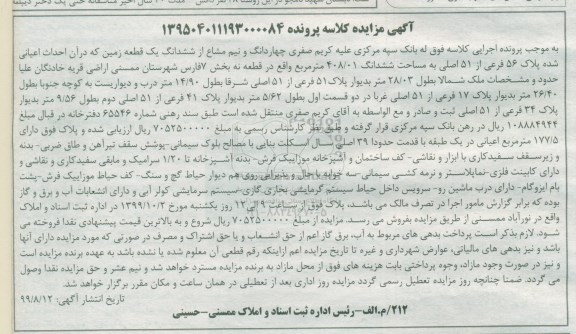 آگهی مزایده کلاسه پرونده ۱۳۹۵۰۴۰۱۱۱۹۳۰۰۰۰۸۴
به موجب پرونده اجرایی کلاسه فوق له بانک سپه مرکزی علیه کریم صفری چهاردانگ و نیم مشاع از ششدانگ یک قطعه زمین که درآن احداث اعیانی
شده پلاک ۵۶ فرعی از ۵۱ اصلی به مساحت ششدانگ ۴۰۸/۰۱ مترمربع واقع در قطعه نه بخش ۷فارس شهرستان ممسنی اراضی قریه خادنگان علیا
حدود و مشخصات ملک شمالا بطول ۲۸/۰۳ متر بدیوار پلاک۵۱ فرعی از ۵۱ اصلی شرقا بطول ۱۴/۹۰ متر درب و دیواریست به کوچه جنوبا بطول
۲۶/۴۰ متر بدیوار پلاک ۱۷ فرعی از ۵۱ اصلی غربا در دو قسمت اول بطول ۵/۶۲ متر بدیوار پلاک ۴۱ فرعی از ۵۱ اصلی دوم بطول ۹/۵۶ متر بدیوار
پلاک ۳۴ فرعی از ۵۱ اصلی ثبت و صادر و مع الواسطه به آقای کریم صفری منتقل شده است طبق سند رهنی شماره ۶۵۵۴۶ دفترخانه در قبال مبلغ
۱۰۸۸۸۴۹۴۴ ریال در رهن بانک سپه مرکزی قرار گرفته و طبق نظر کارشناس رسمی به مبلغ ۷۰۵۲۵۰۰۰۰۰ ریال ارزیابی شده و پلاک فوق دارای
۱۷۷/۵ مترمربع اعیانی در یک طبقه با قدمت حدودا ۳۹ سال اسکلت بنایی با مصالح بلوک سیمانی-پوشش سقف تیرآهن و طاق ضربی- بدنه
و زیرسقف سفیدکاری با ابزار و نقاشی- کف ساختمان و آشپزخانه موزاییک فرش- بدنه آشپزخانه تا ۱/۲۰ سرامیک و مابقی سفیدکاری و نقاشی و
دارای کابینت فلزی-نماپلاستر و نرمه کشی سیمانی-سه خوابه با حال و پذیرایی روی هم دیوار حیاط گچ و سنگ- کف حیاط موزاییک فرش-پشت
بام ایزوگام- دارای درب ماشین رو- سرویس داخل حیاط سیستم گرمایشی بخاری گازی-سیستم سرمایشی کولر آبی و دارای انشعابات آب و برق و گاز
بوده که برابر گزارش مامور اجرا در تصرف مالک می باشد، پلاک فوق از ساعت ۹ الی ۱۲ روز یکشنبه مورخ ۱۳۹۹/۱۰/۲ در اداره ثبت اسناد و املاک
واقع در نورآباد ممسنی از طریق مزایده بفروش می رسد. مزایده از مبلغ ۷۰۵۲۵۰۰۰۰۰ ریال شروع و به بالاترین قیمت پیشنهادی نقدا فروخته می
شود. لازم بذکر است پرداخت بدهی های مربوط به آب، برق گاز اعم از حق انشعاب و یا حق اشتراک و مصرف در صورتی که مورد مزایده دارای آنها
باشد و نیز بدهی های مالیاتی، عوارض شهرداری و غیره تا تاریخ مزایده اعم ازاینکه رقم قطعی آن معلوم شده یا نشده باشد به عهده برنده مزایده است
و نیز در صورت وجود مازاد، وجوه پرداختی بابت هزینه های فوق از محل مازاد به برنده مزایده مسترد خواهد شد و نیم عشر و حق مزایده نقدا وصول
می گردد. ضمنا چنانچه روز مزایده تعطیل رسمی گردد مزایده روز اداری بعد از تعطیلی در همان ساعت و مکان مقرر برگزار خواهد شد.
تاریخ انتشار آگهی: ۹۹/۸/۱۲
۲۱۲/م.الف-رئیس اداره ثبت اسناد و املاک ممسنی-حسینی